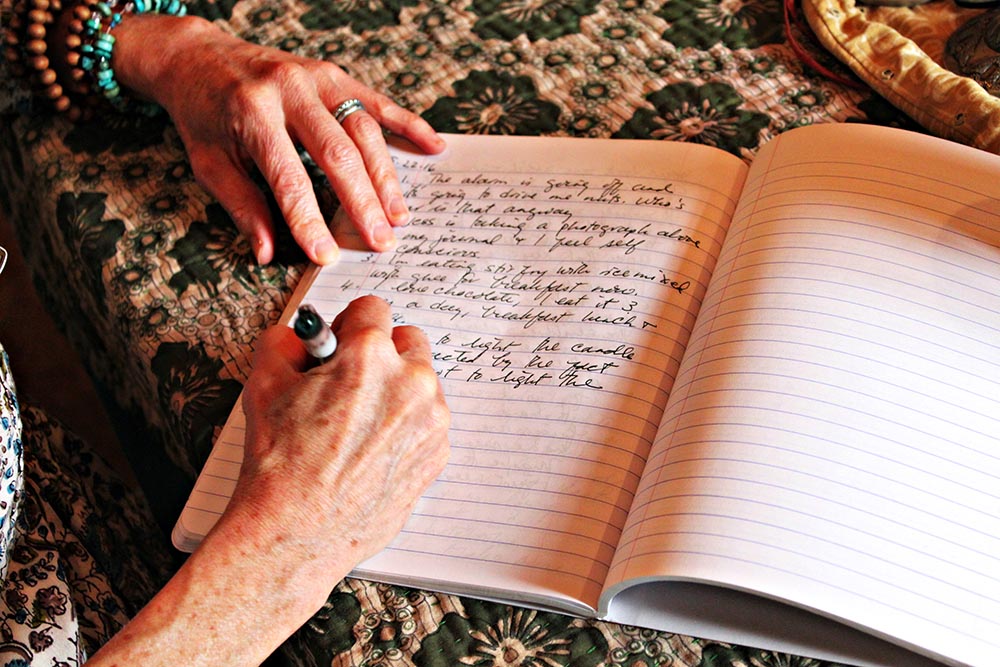 5.22.16
1. The alarm is going off and
going to drive me nuts. Who's
is that anyway
is taking a photograph above
my journal & I feel self
conscious.
3. I'm eating stir fry with rice mixed
with ghee for breakfast now.
4. I love chocolate, I eat it 3
a day, breakfast lunch &
to light the candle
by the fact
to light the